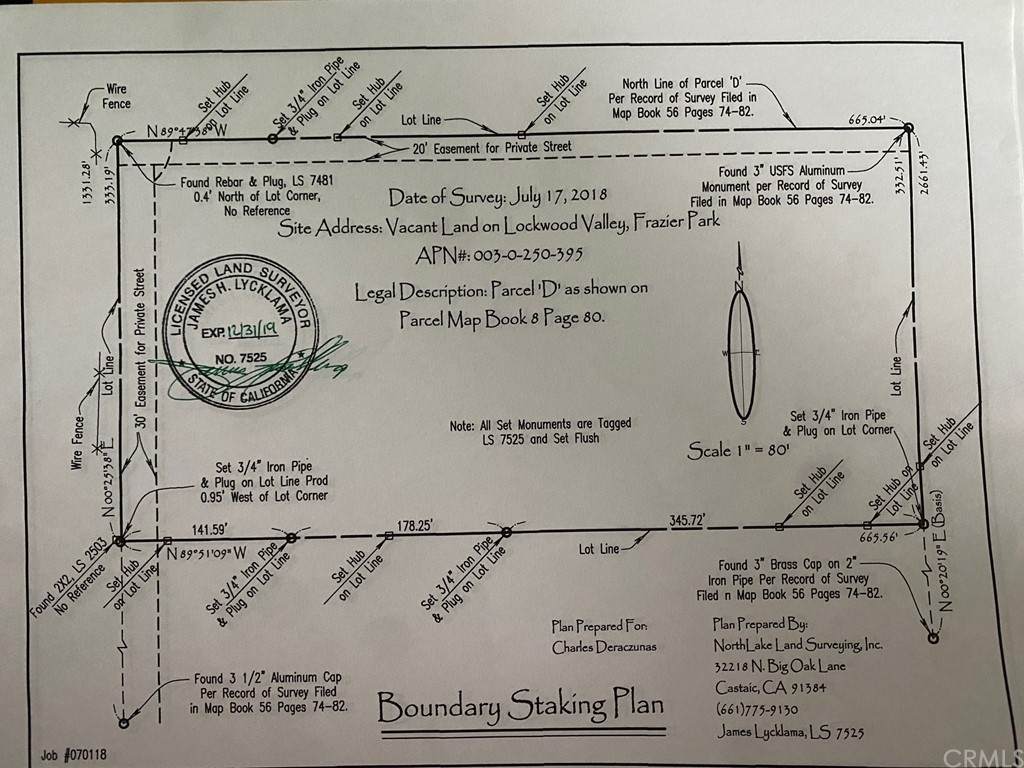 Wire
Fence
Set Hub
on Lot Line
Set 3/4" Iron Pipe
& Plug on Lot Line
Set Hub
on Lot Line
Lot Line
Set Hub
on Lot Line
North Line of Parcel 'D'
Per Record of Survey Filed in
Map Book 56 Pages 74-82.
665.04'
N 89°47'38" W
20' Easement for Private Street
1331.28'
333.19'
332.51'
2661.43'
Found Rebar & Plug, LS 7481
0.4' North of Lot Corner,
No Reference
Found 3" USFS Aluminum
Monument per Record of Survey
Filed in Map Book 56 Pages 74-82.
Date of Survey: July 17, 2018
Site Address: Vacant Land on Lockwood Valley, Frazier Park
APN#: 003-0-250-395
Legal Description: Parcel 'D' as shown on
Parcel Map Book 8 Page 80.
LICENSED LAND SURVEYOR
JAMES H. LYCKLAMA
EXP. 12/31/19
NO. 7525
STATE OF CALIFORNIA
N
W
E
S
Lot Line
30' Easement for Private Street
Lot Line
Wire Fence
N 00°25'38" E
Note: All Set Monuments are Tagged
LS 7525 and Set Flush
Scale 1" = 80'
Set 3/4" Iron Pipe
& Plug on Lot Corner
Set Hub
on Lot Line
Set 3/4" Iron Pipe
& Plug on Lot Line Prod
0.95' West of Lot Corner
Set Hub
on Lot Line
Set Hub on
Lot Line
141.59'
178.25'
345.72'
665.56'
N 89°51'09" W
Lot Line
N 00°20'19" E (Basis)
Found 2X2, LS 2503
No Reference
Set Hub
on Lot Line
Set 3/4" Iron Pipe
& Plug on Lot Line
Set Hub
on Lot Line
Set 3/4" Iron Pipe
& Plug on Lot Line
Found 3" Brass Cap on 2"
Iron Pipe Per Record of Survey
Filed n Map Book 56 Pages 74-82.
Plan Prepared For:
Charles Deraczunas
Plan Prepared By:
NorthLake Land Surveying, Inc.
32218 N. Big Oak Lane
Castaic, CA 91384
(661)775-9130
James Lycklama, LS 7525
Found 3 1/2" Aluminum Cap
Per Record of Survey Filed
in Map Book 56 Pages 74-82.
Boundary Staking Plan
Job #070118
CRMLS